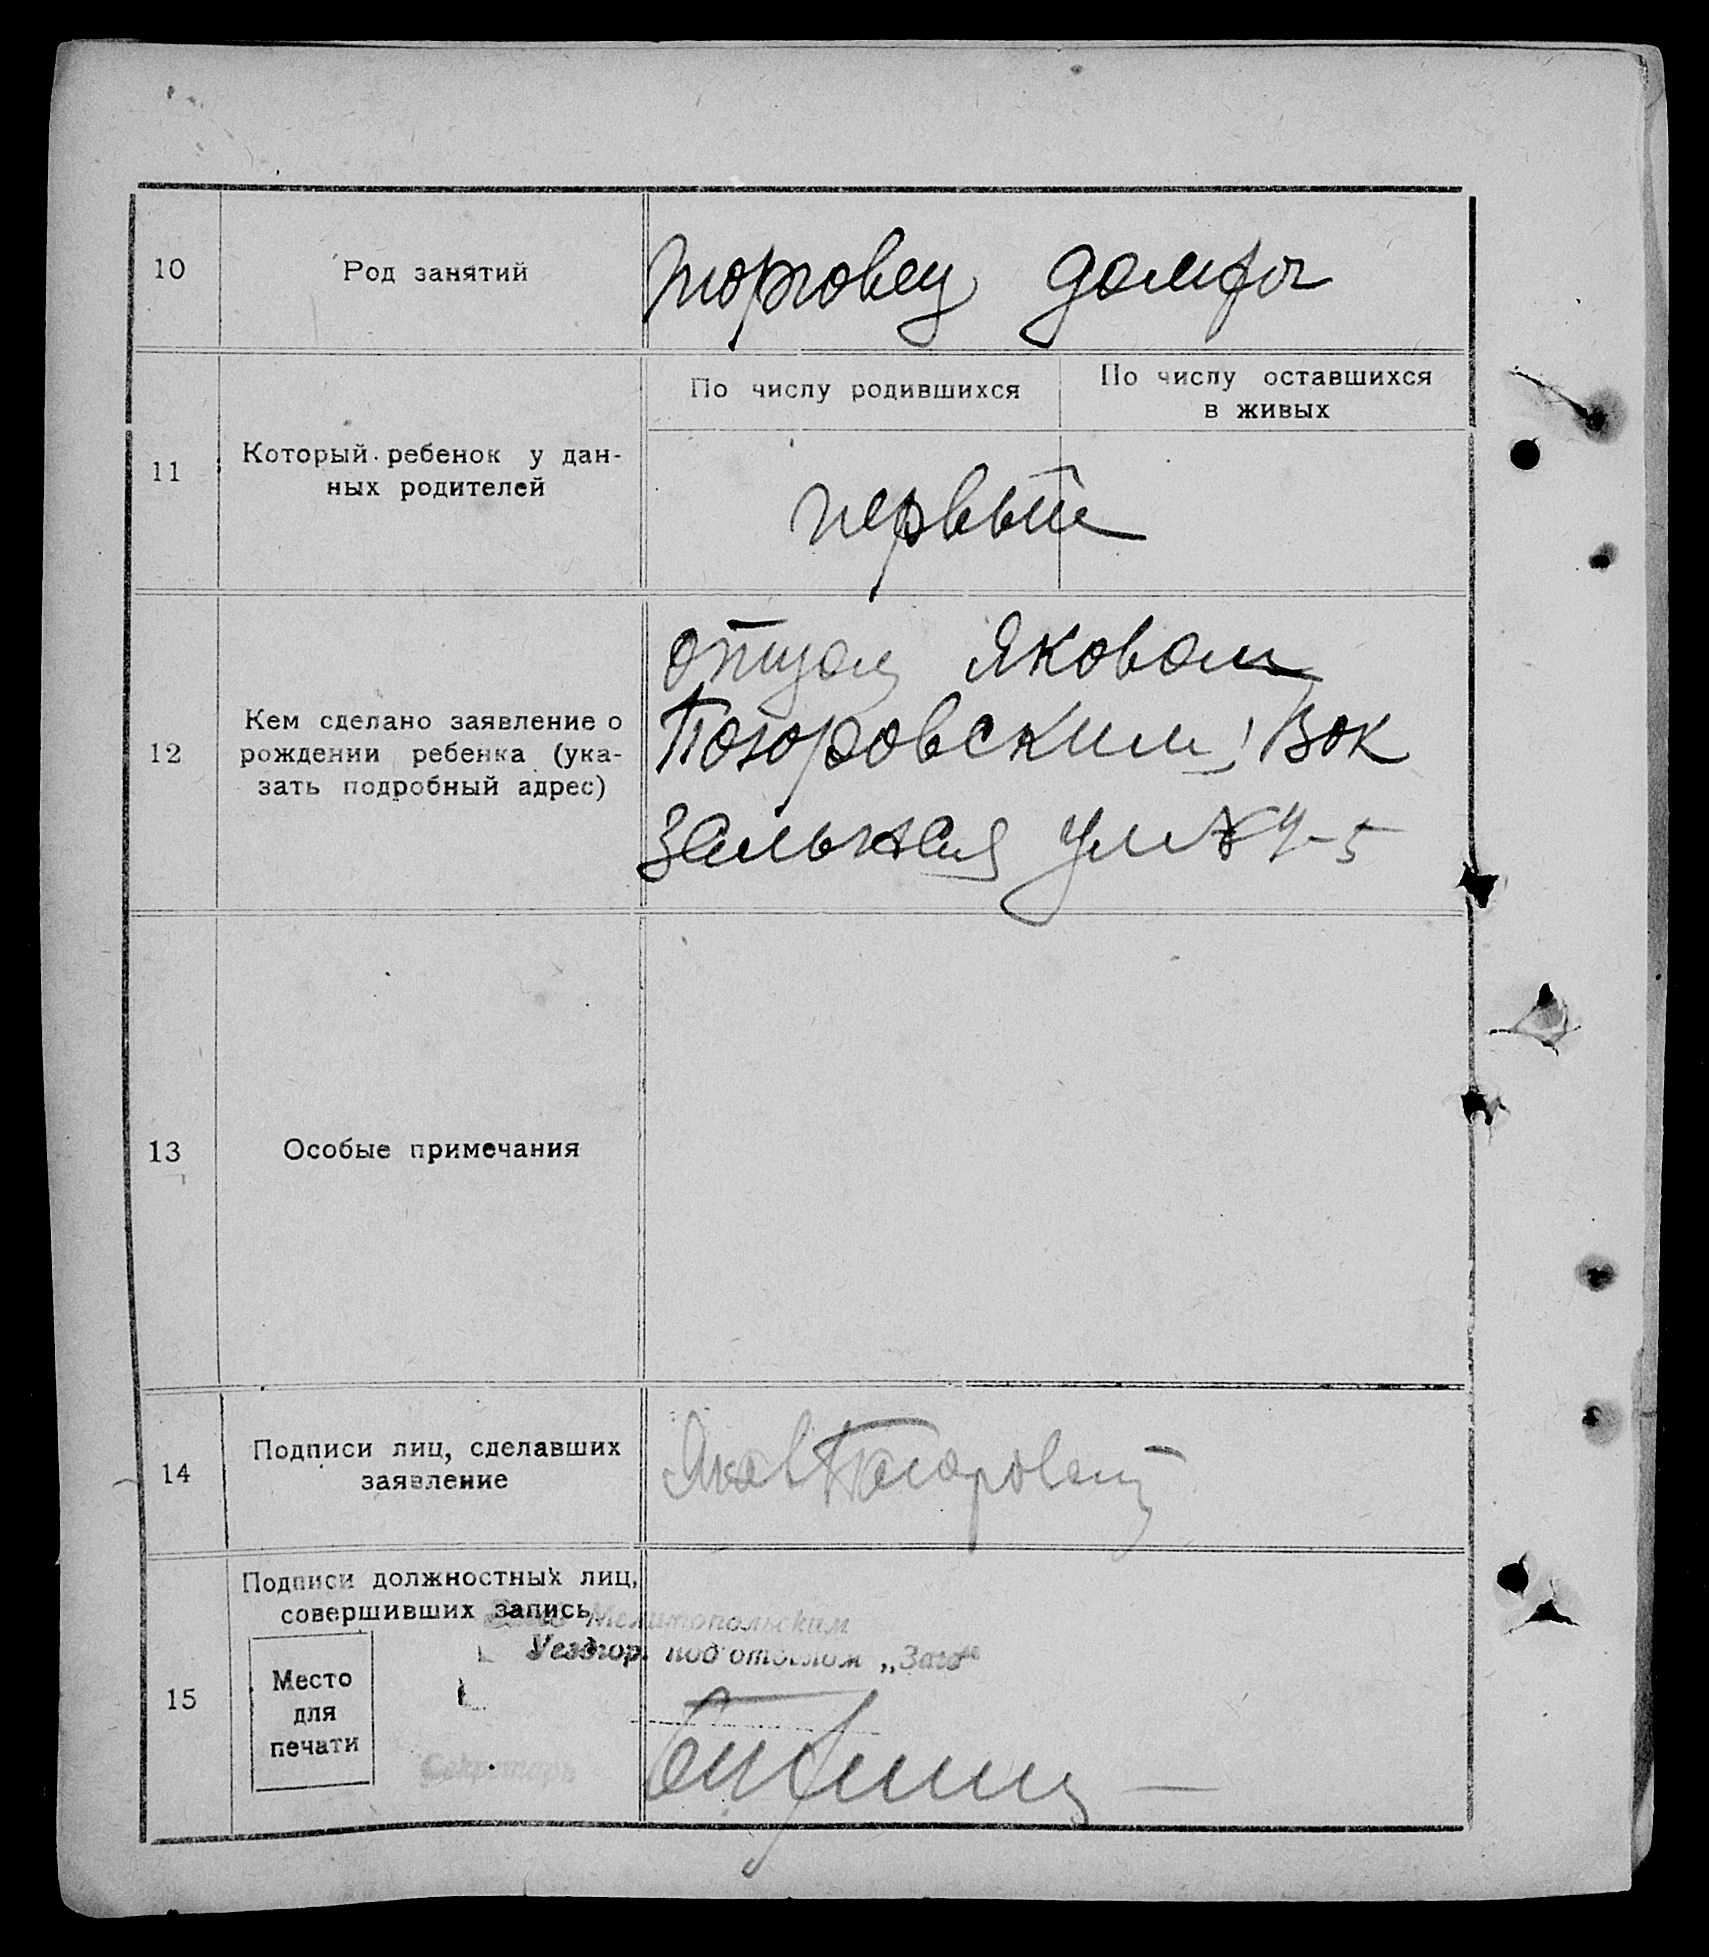 10
Род занятий
торговец
11
Который ребенок у дан-
ных родителей
По числу родившихся
По числу оставшихся
в живых
первый
12
Кем сделано заявление о
рождении ребенка (ука-
зать подробный адрес)
отцом Яковом
Вок
зальная ул №
13
Особые примечания
14
Подписи лиц, сделавших
заявление
Яков
15
Подписи должностных лиц,
совершивших запись.
Место
для
печати
Мелитопольским
Уездгор. подотделом „Загс“
Секретарь